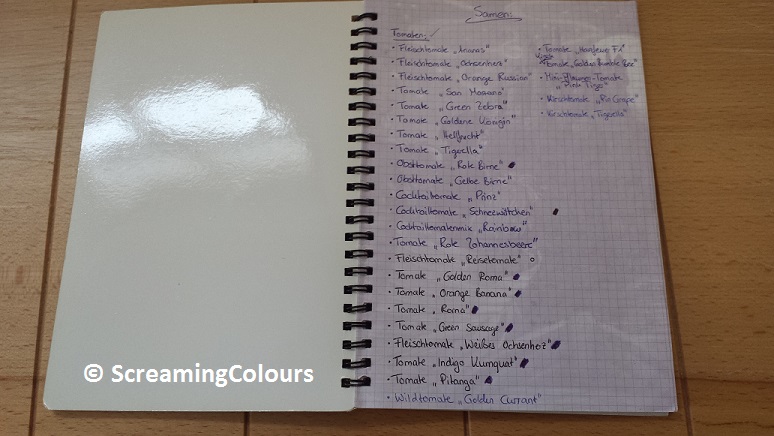 Samen:
Tomaten: ✓
• Fleischtomate „Ananas“
• Fleischtomate „Ochsenherz“
• Fleischtomate „Orange Russian“
• Tomate „San Marzano“
• Tomate „Green Zebra“
• Tomate „Goldene Königin“
• Tomate „Hellfrucht“
• Tomate „Tigerella“
• Obsttomate „Rote Birne“
• Obsttomate „Gelbe Birne“
• Cocktailtomate „Prinz“
• Cocktailtomate „Schneewittchen“
• Cocktailtomatenmix „Rainbow“
• Tomate „Rote Johannesbeere“
• Fleischtomate „Reisetomate“
• Tomate „Golden Roma“
• Tomate „Orange Banana“
• Tomate „Roma“
• Tomate „Green Sausage“
• Fleischtomate „Weißes Ochsenherz“
• Tomate „Indigo Kumquat“
• Tomate „Pitanga“
• Wildtomate „Golden Currant“
• Tomate „Harzfeuer F1“
• Tomate „Golden Bumble Bee“
• Mini-Pflaumen-Tomate
„Pink Tiger“
• Kirschtomate
• Kirschtomate
© ScreamingColours